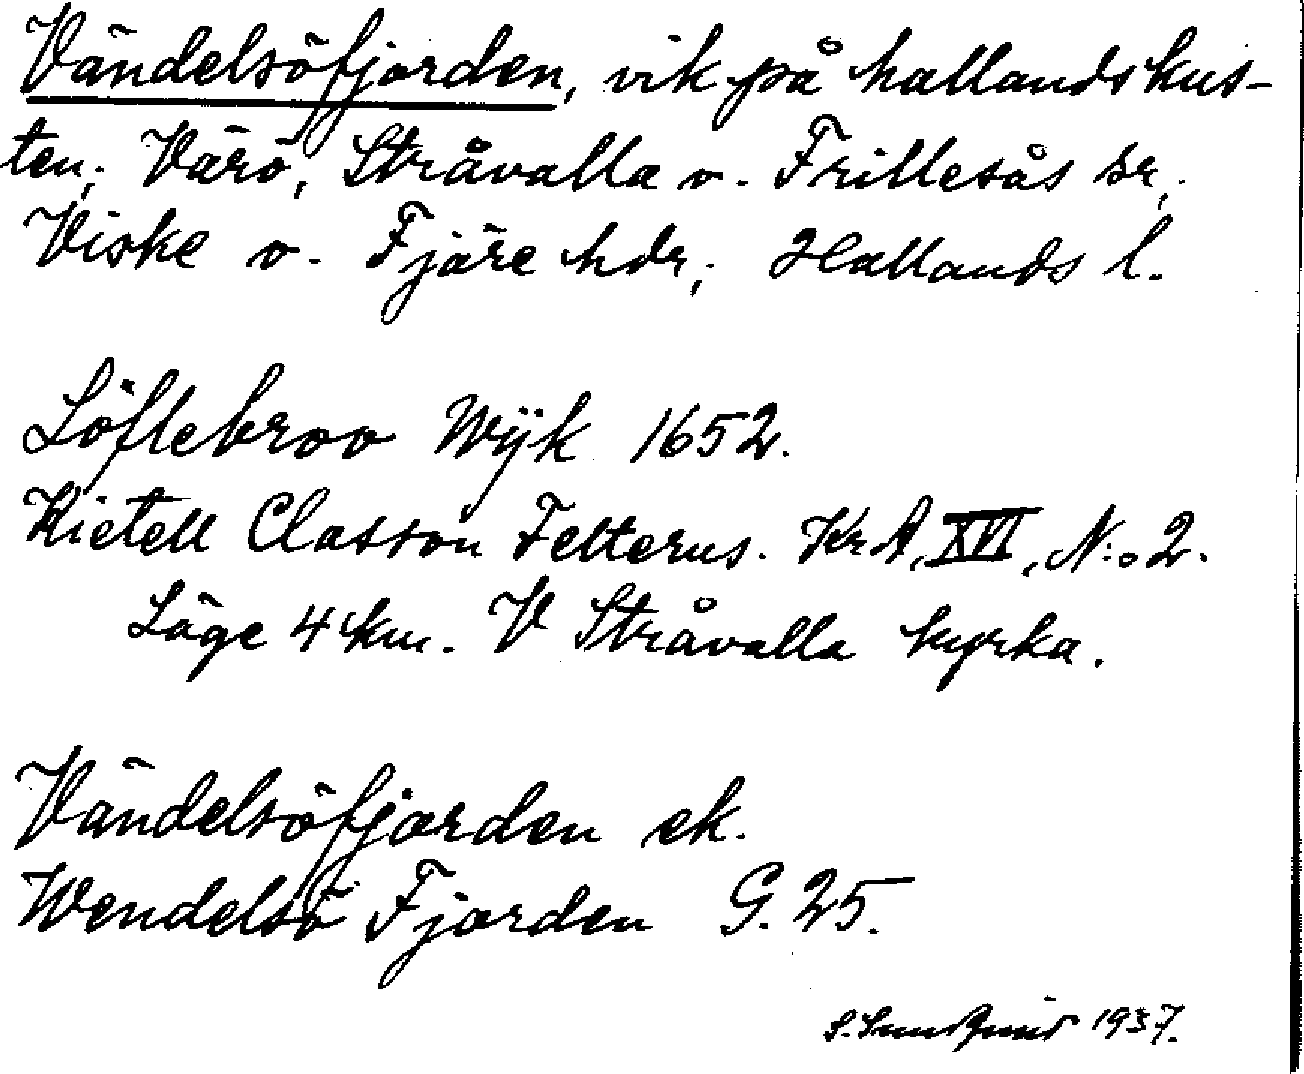 Vändelsöfjorden, vik på hallandskus-
ten; Värö, Stråvalla o. Frillesås sr,
Viske o. Fjäre hdr; Hallands l.
Löftebroo Wijk 1652.
Kietell Classon Felterus. KrA, XVI, N:o 2.
Läge 4 km. V Stråvalla kyrka.
Vändelsöfjorden ek.
Wendelsö Fjorden G. 25.
1937.